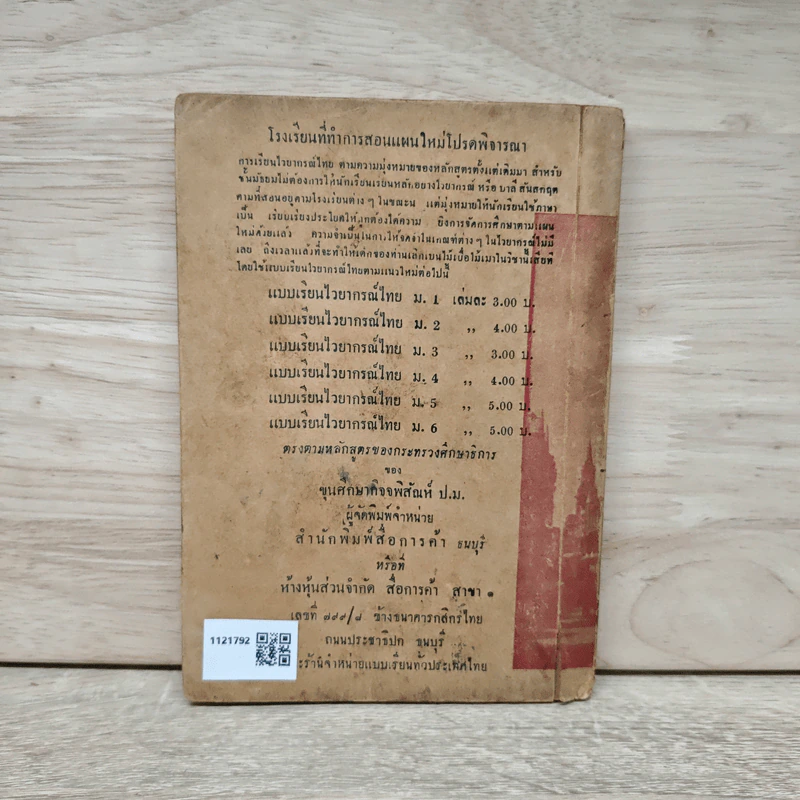 โรงเรียนที่ทำการสอนแผนใหม่โปรดพิจารณา
การเรียนไวยากรณ์ไทย ตามความมุ่งหมายของหลักสูตรตั้งแต่เดิมมา สำหรับ
ชั้นมัธยมไม่ต้องการให้นักเรียนเรียนหลักอย่างไวยากรณ์ หรือ บาลี สันสกฤต
ตามที่สอนอยู่ตามโรงเรียนต่าง ๆ ในขณะนี้ แต่มุ่งหมายให้นักเรียนใช้ภาษา
เป็น เรียบเรียงประโยคให้ถูกต้องได้ความ ยิ่งการจัดการศึกษาตามแผน
ใหม่ด้วยแล้ว ความจำเป็นในการให้จดจำในเกณฑ์ต่าง ๆ ในไวยากรณ์ไม่มี
เลย ถึงเวลาแล้วที่จะทำให้เด็กของท่านเลิกเบนไม้เบื่อไม้เมาในวิชานี้เสียที
โดยใช้แบบเรียนไวยากรณ์ไทยตามแนวใหม่ต่อไปนี้
แบบเรียนไวยากรณ์ไทย ม. 1 เล่มละ 3.00 บ.
แบบเรียนไวยากรณ์ไทย ม. 2 ,, 4.00 บ.
แบบเรียนไวยากรณ์ไทย ม. 3 ,, 3.00 บ.
แบบเรียนไวยากรณ์ไทย ม. 4 ,, 4.00 บ.
แบบเรียนไวยากรณ์ไทย ม. 5 ,, 5.00 บ.
แบบเรียนไวยากรณ์ไทย ม. 6 ,, 5.00 บ.
ตรงตามหลักสูตรของกระทรวงศึกษาธิการ
ของ
ขุนศึกษากิจจพิสัณห์ ป.ม.
ผู้จัดพิมพ์จำหน่าย
สำนักพิมพ์สื่อการค้า ธนบุรี
หรือที่
ห้างหุ้นส่วนจำกัด สื่อการค้า สาขา ๑
เลขที่ ๗๙๙/๘ ข้างธนาคารกสิกรไทย
ถนนประชาธิปก ธนบุรี
ร้านจำหน่ายแบบเรียนทั่วประเทศไทย
1121792